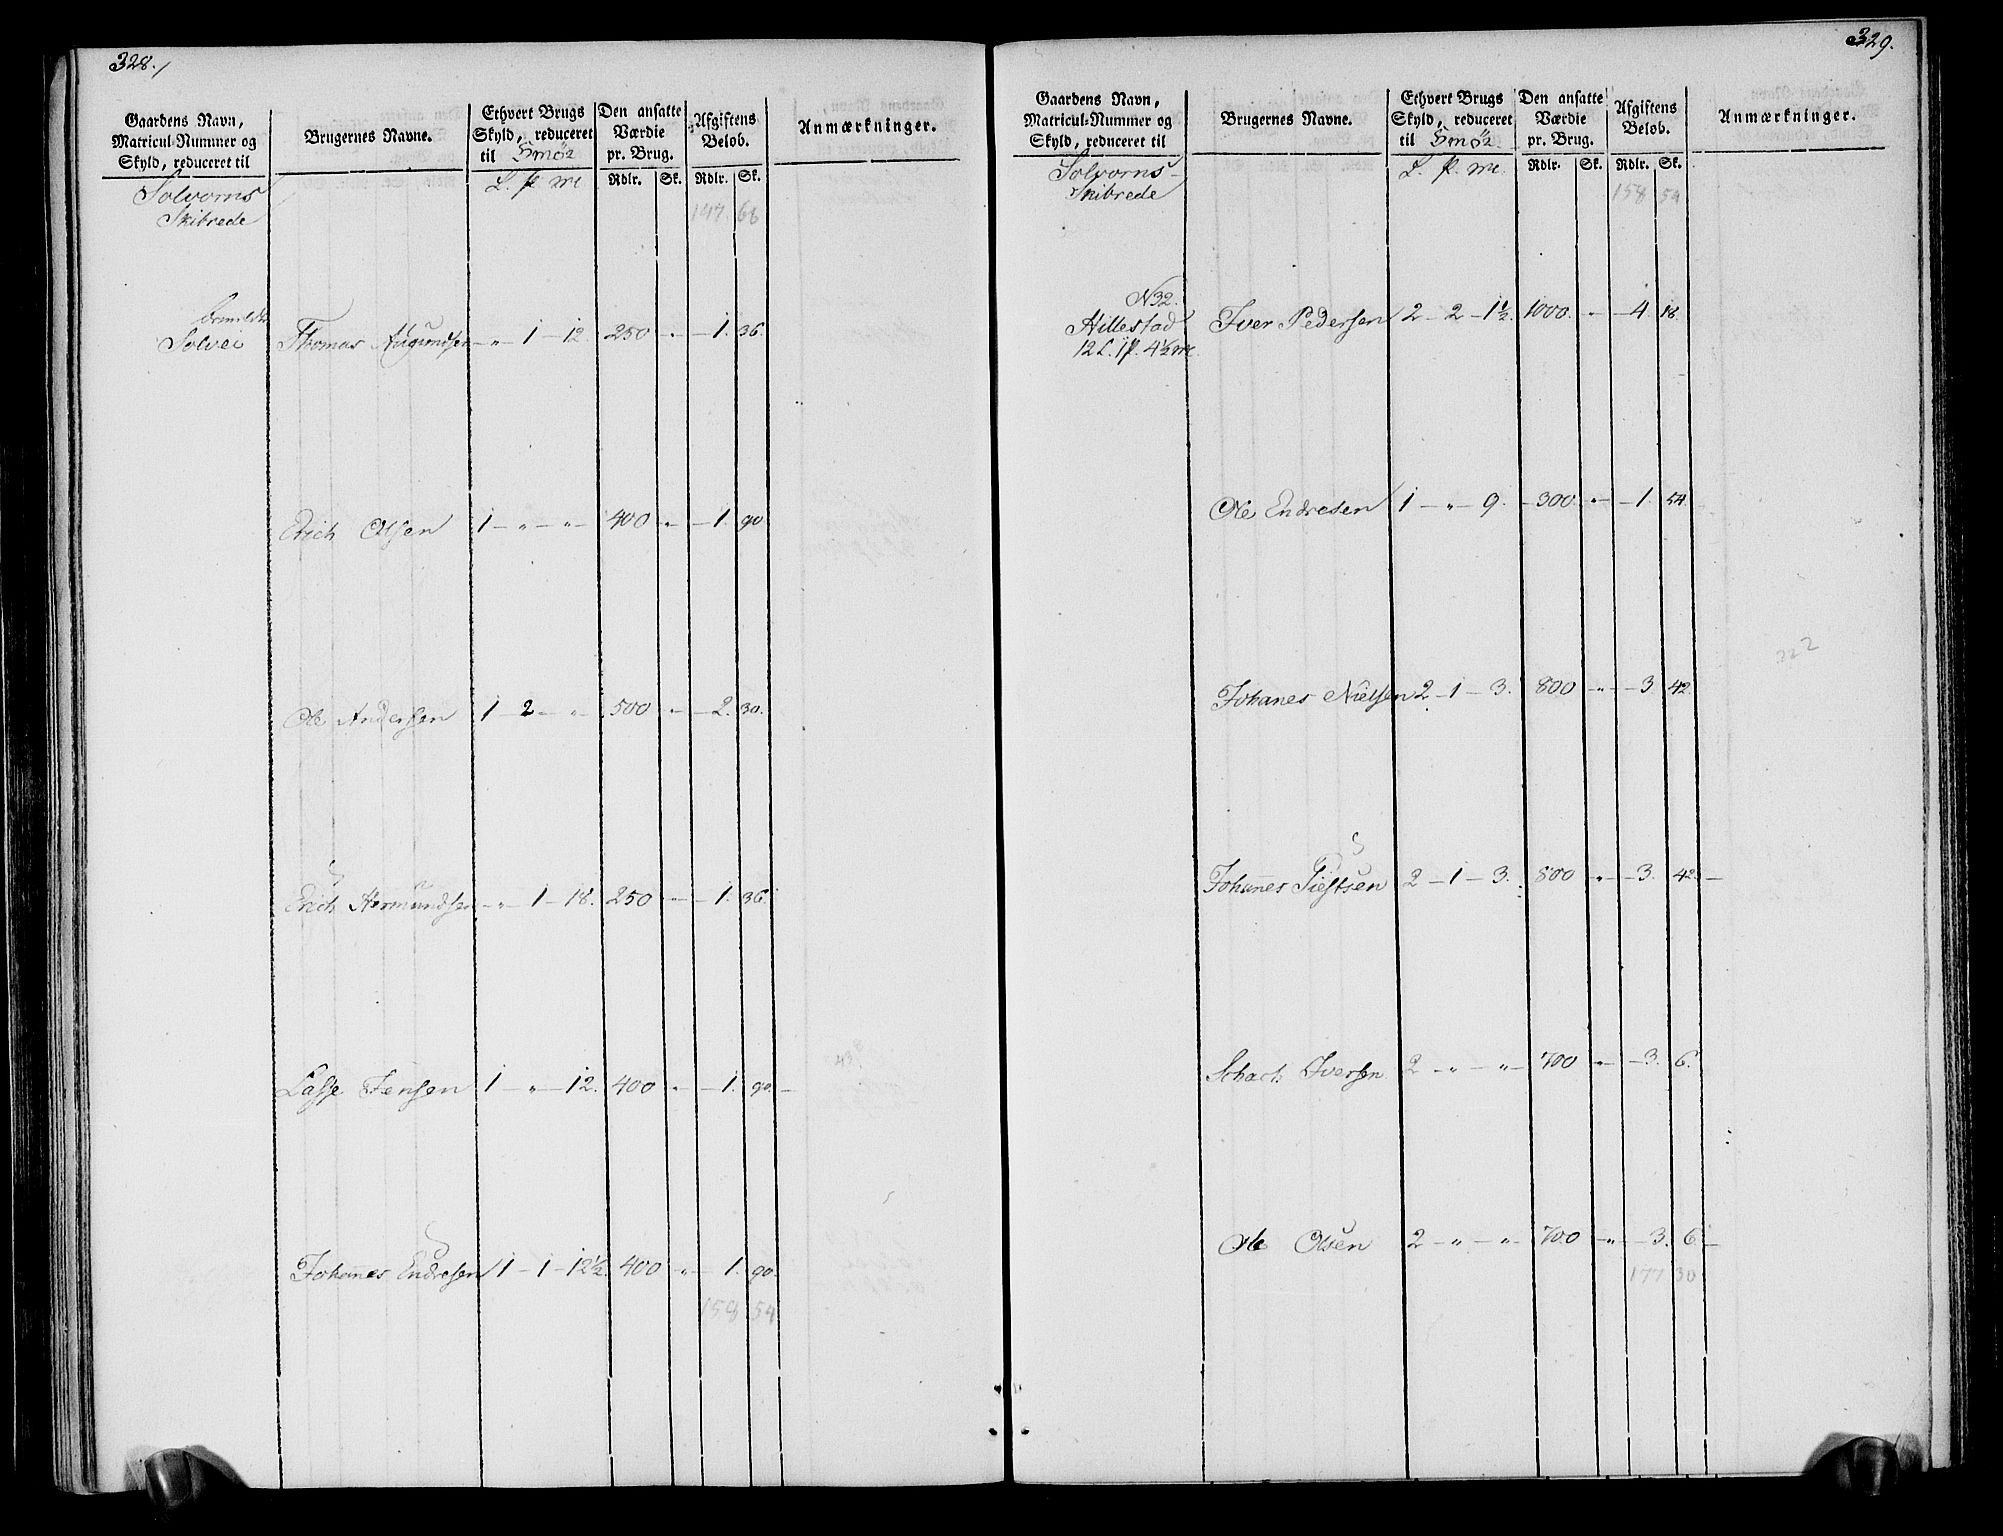 328./
Gaardens Navn,
Matricul-Nummer og
Skyld, reduceret til
Brugernes Navne.
Ethvert Brugs
Skyld, reduceret
til Smör
Den ansatte
Værdie
pr. Brug.
Afgiftens
Beløb.
Anmærkninger.
L. p. mk Rdlr. Sk. Rdlr. Sk.
Solvorns
Skibrede
147. 68
Solvei Thomas Augundsen - " - 1 - 12. 250 " - 1. 36.
Erich Olsen 1 - " - " - 400 " - 1. 90
Ole Andersen 1 - 2 - " - 500 " - 2. 30.
Erich Hermundsen - " - 1 - 18. 250 " - 1. 36.
Lasse Jensen 1 - " - 12. 400 " - 1. 90. -
Johannes Endresen 1 - 1 - 12½. 400 " - 1. 90.
158 54
329.
Gaardens Navn,
Matricul-Nummer og
Skyld, reduceret til
Brugernes Navne.
Ethvert Brugs
Skyld, reduceret
til Smör
Den ansatte
Værdie
pr. Brug.
Afgiftens
Beløb.
Anmærkninger.
L. p. mk. Rdlr. Sk. Rdlr. Sk.
Solvorns-
Skibrede
158 54
N 32.
Hillestad
12 L. 1 p. 4½ mk.
Iver Pedersen 2 - 2 - 1½. 1000. " - 4 18.
Ole Endresen 1 - " - 9. - 300. " - 1. 54.
Johanes Nielsen 2 - 1 - 3. 800 " - 3. 42.
Johannes 2 - 1 - 3. 800 " - 3. 42. -
Schach Iversen 2 - " - " - 700 " - 3. 6.
Ole Olsen 2 - " - " - 700 " - 3. 6 -
177 30